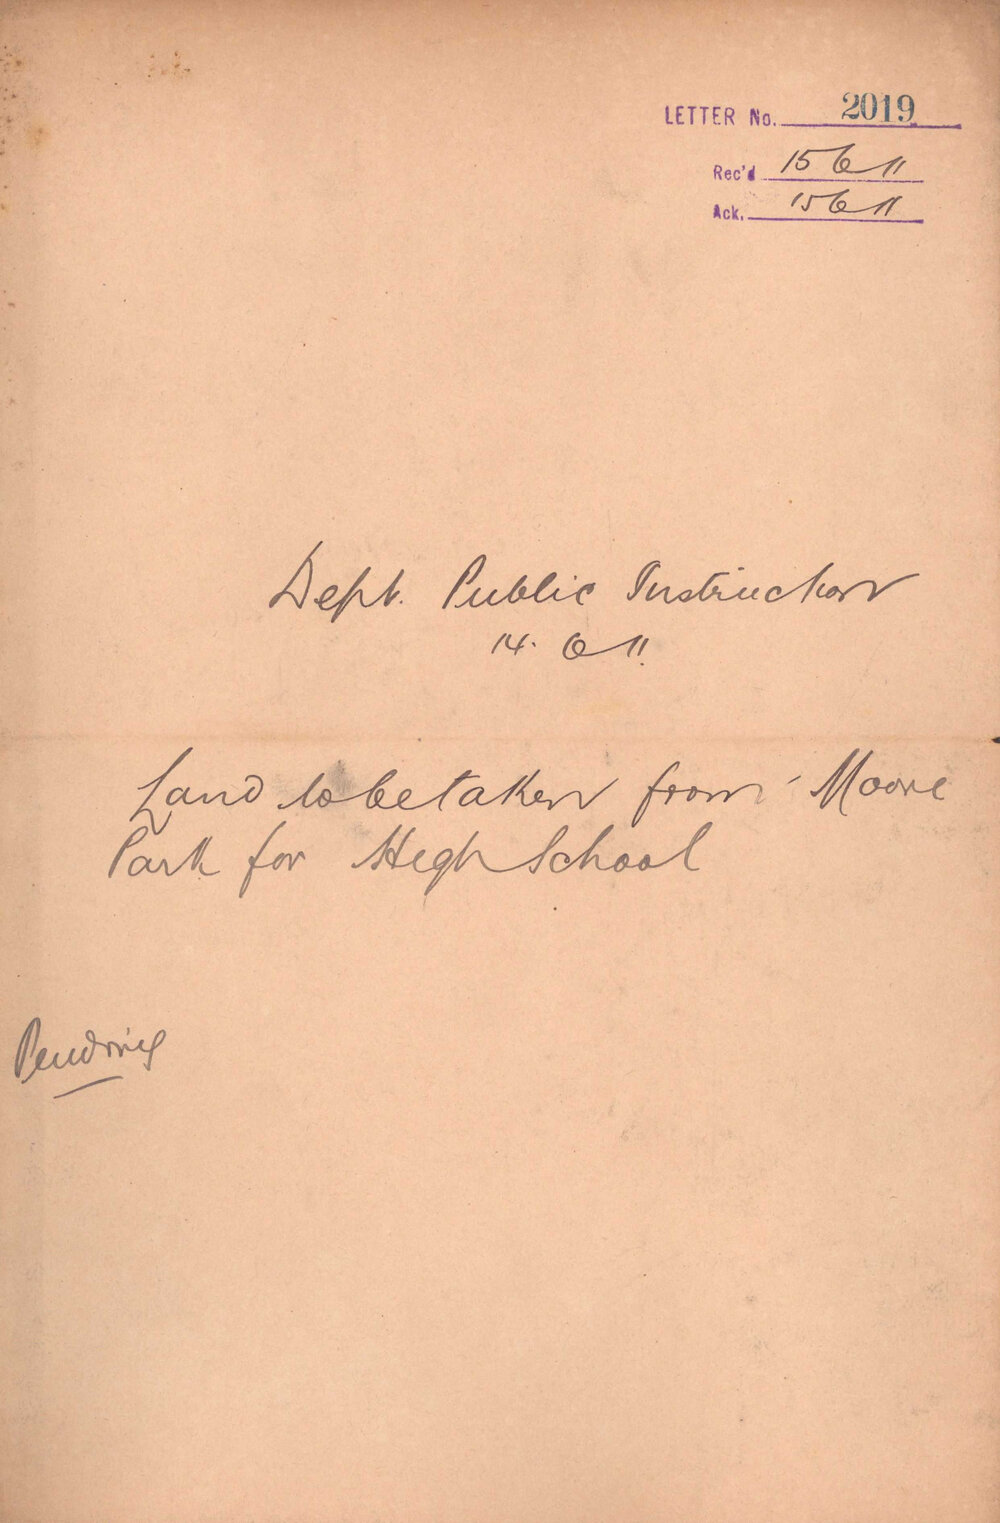 LETTER No. 2019
Rec'd 15 6 11
Ack. 15 6 11
Dept. Public Instruction
14. 6 11.
Land to be taken from Moore
Park for High School
Pending